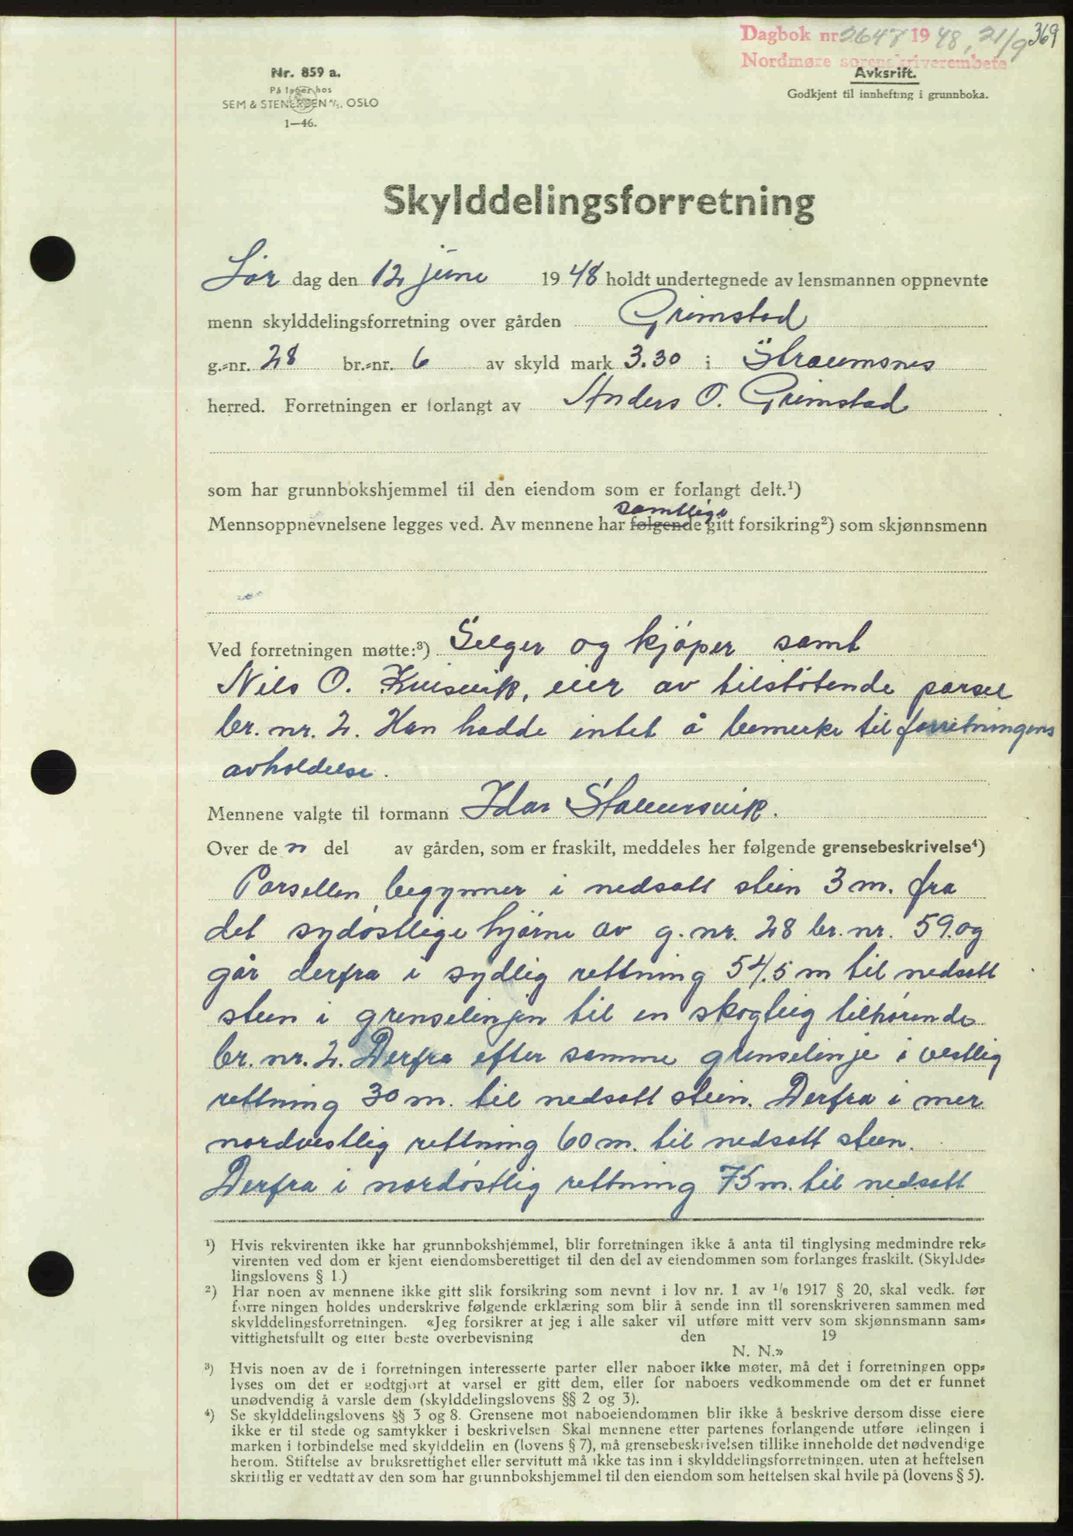 Dagbok nr. 2647 1948, 21/9 369
Nordmøre sorenskriverembete
Nr. 859 a.
På lager hos
SEM & STENERSEN A/S, OSLO
1—46.
Avskrift.
Godkjent til innhefting i grunnboka.
Skylddelingsforretning
Lør dag den 12 juni 1948 holdt undertegnede av lensmannen oppnevnte
menn skylddelingsforretning over gården Grimstad
g.-nr. 28 br.-nr. 6 av skyld mark 3.30 i Straumsnes
herred. Forretningen er forlangt av Anders O. Grimstad
som har grunnbokshjemmel til den eiendom som er forlangt delt.¹)
samtlige
Mennsoppnevnelsene legges ved. Av mennene har følgende gitt forsikring²) som skjønnsmenn
Ved forretningen møtte:³) Selger og kjøper samt
Nils O. Kvisvik, eier av tilstøtende parsel
br. nr. 2. Han hadde intet å bemerke til forretningens
avholdelse.
Mennene valgte til formann Idar Stavnesvik.
Over den del av gården, som er fraskilt, meddeles her følgende grensebeskrivelse⁴)
Parsellen begynner i nedsatt stein 3 m. fra
det sydøstlige hjørne av g. nr. 28 br. nr. 59. og
går derfra i sydlig rettning 54.5 m til nedsatt
stein i grenselinjen til en skogteig tilhørende
br. nr. 2. Derfra efter samme grenselinje i vestlig
rettning 30 m. til nedsatt stein. Derfra i mer
nordvestlig rettning 60 m. til nedsatt stein.
Derfra i nordøstlig rettning 75 m. til nedsatt
¹) Hvis rekvirenten ikke har grunnbokshjemmel, blir forretningen ikke å anta til tinglysing medmindre rek-
virenten ved dom er kjent eiendomsberettiget til den del av eiendommen som forlanges fraskilt. (Skyldde-
lingslovens § 1.)
²) Har noen av mennene ikke gitt slik forsikring som nevnt i lov nr. 1 av 1/6 1917 § 20, skal vedk. før
forretningen holdes underskrive følgende erklæring som blir å sende inn til sorenskriveren sammen med
skylddelingsforretningen. «Jeg forsikrer at jeg i alle saker vil utføre mitt verv som skjønnsmann sam-
vittighetsfullt og etter beste overbevisning den 19
N. N.»
³) Hvis noen av de i forretningen interesserte parter eller naboer ikke møter, må det i forretningen opp-
lyses om det er godtgjort at varsel er gitt dem, eller for naboers vedkommende om det er funnet
unødvendig å varsle dem (skylddelingslovens §§ 2 og 3).
⁴) Se skylddelingslovens §§ 3 og 8. Grensene mot naboeiendommen blir ikke å beskrive dersom disse eiere
ikke er til stede og samtykker i beskrivelsen. Skal mennene etter partenes forlangende utføre delingen i
marken i forbindelse med skylddelingen (lovens § 7), må grensebeskrivelsen tillike inneholde det nødvendige
herom. Stiftelse av bruksrettighet eller servitutt må ikke tas inn i skylddelingsforretningen, uten at heftelsen
skriftlig er vedtatt av den som har grunnbokshjemmel til den eiendom som heftelsen skal hvile på (lovens § 5).